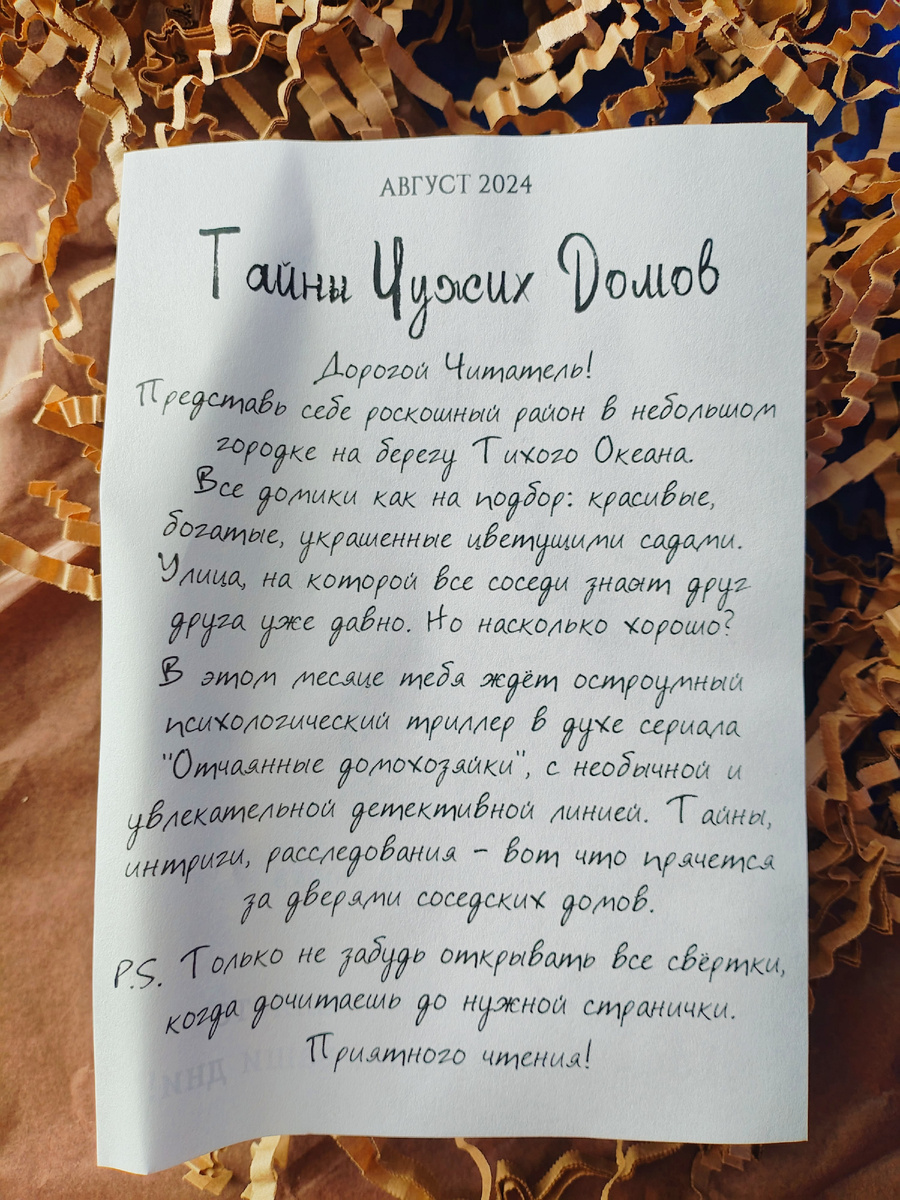 АВГУСТ 2024
Тайны Чужих Домов
Дорогой Читатель!
Представь себе роскошный район в небольшом
городке на берегу Тихого Океана.
Все домики как на подбор: красивые,
богатые, украшенные цветущими садами.
Улица, на которой все соседи знают друг
друга уже давно. Но насколько хорошо?
В этом месяце тебя ждёт остроумный
психологический триллер в духе сериала
"Отчаянные домохозяйки", с необычной и
увлекательной детективной линией. Тайны,
интриги, расследования - вот что прячется
за дверями соседских домов.
P.S. Только не забудь открывать все свёртки,
когда дочитаешь до нужной странички.
Приятного чтения!